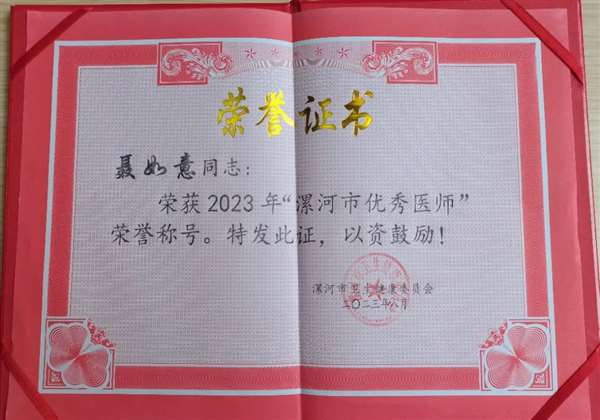 荣誉证书
聂如意同志：
荣获2023年“漯河市优秀医师”
荣誉称号。特发此证，以资鼓励！
漯河市卫生健康委员会
二〇二三年八月